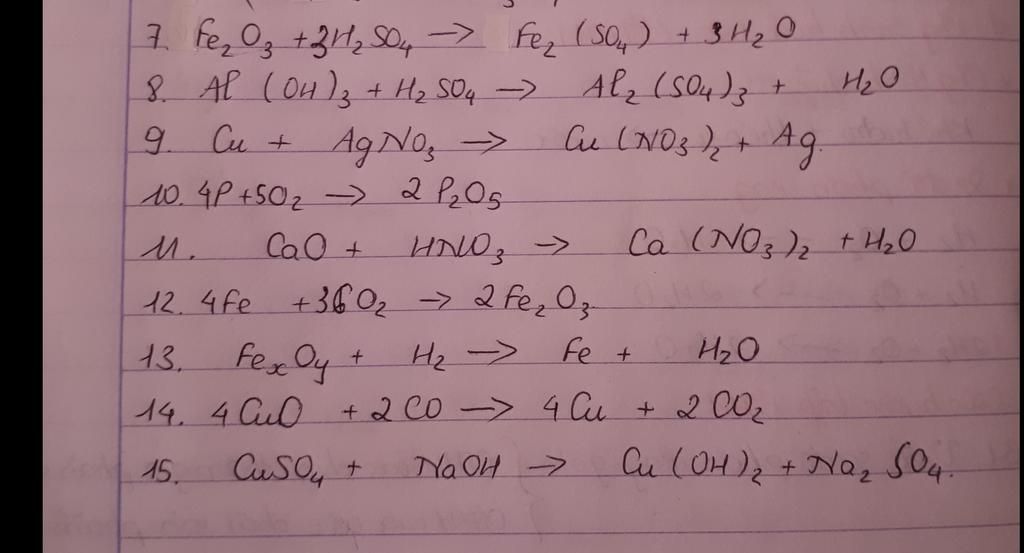 7. Fe₂O₃ + 3H₂SO₄ → Fe₂(SO₄) + 3H₂O
8. Al(OH)₃ + H₂SO₄ → Al₂(SO₄)₃ + H₂O
9. Cu + AgNO₃ → Cu(NO₃)₂ + Ag.
10. 4P + 5O₂ → 2P₂O₅
11. CaO + HNO₃ → Ca(NO₃)₂ + H₂O
12. 4Fe + 3O₂ → 2Fe₂O₃
13. FeₓOy + H₂ → Fe + H₂O
14. 4CuO + 2CO → 4Cu + 2CO₂
15. CuSO₄ + NaOH → Cu(OH)₂ + Na₂SO₄.